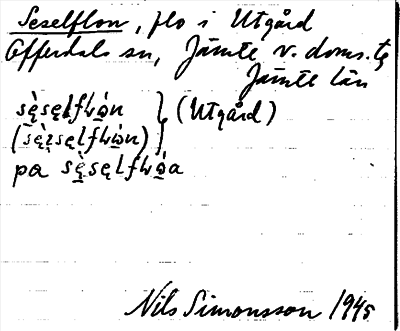 Seselflon, flo i Utgård
Offerdals sn, Jämte v. doms. tg
Jämte län
sę̀sęlfꞭὼn } (Utgård)
(sę̀sęlfꞭὼn)
pa sę̀sęlfꞭὼa
Nils Simonsson 1945